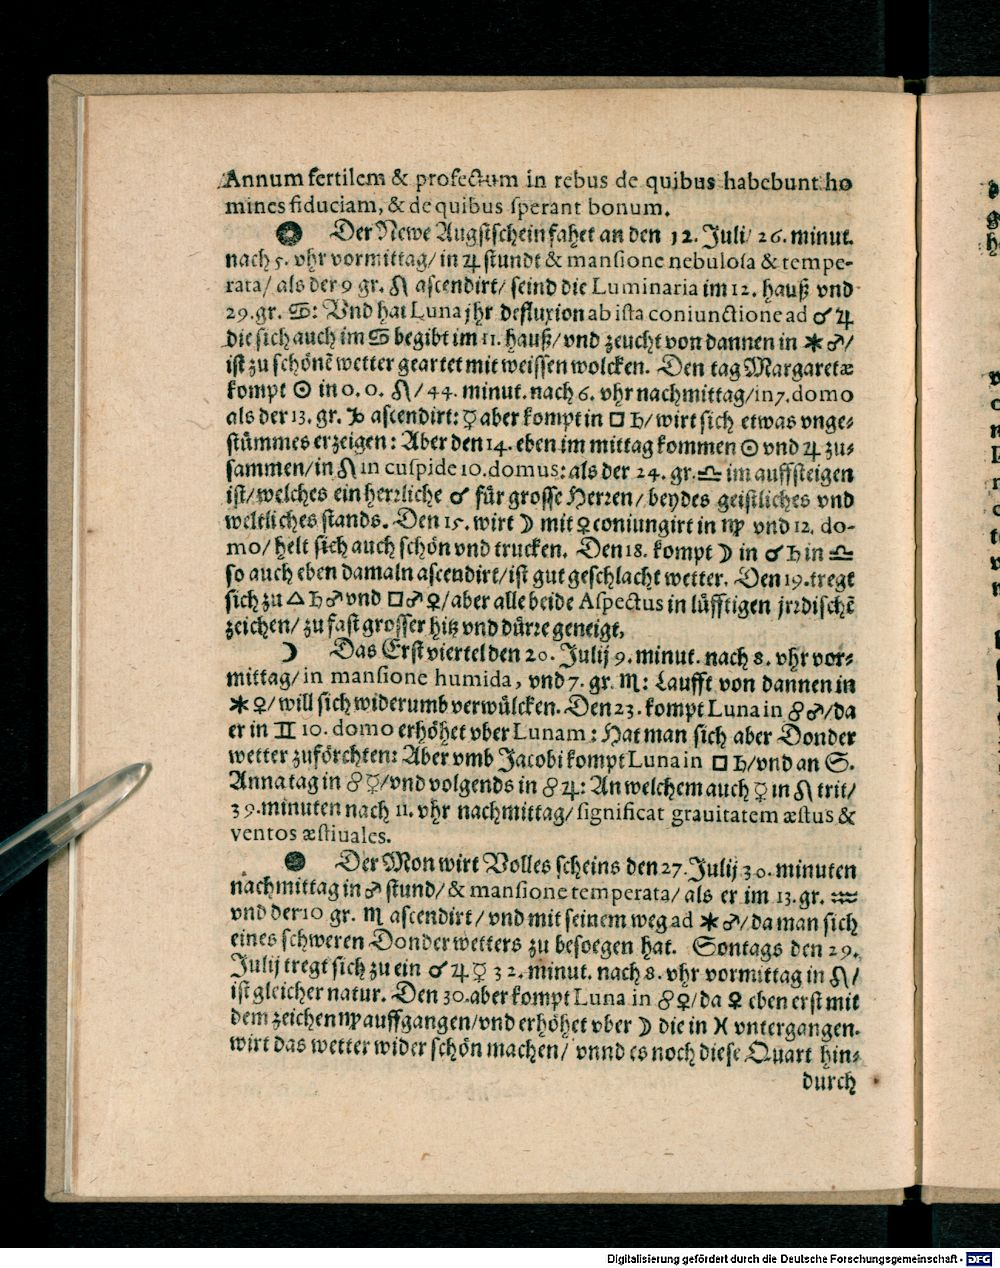 Annum fertilem & profectum in rebus de quibus habebunt ho
mines fiduciam, & de quibus sperant bonum.
Der Newe Augstschein fahet an den 12. Juli/ 26. minut.
nach 5. vhr vormittag/ in ♃ stundt & mansione nebulosa & tempe-
rata/ als der 9 gr. ♌ ascendirt/ seind die Luminaria im 12. hauß vnd
29. gr. ♋: Vnd hat Luna jhr defluxion ab ista coniunctione ad ☌ ♃
die sich auch im ♋ begibt im 11. hauß/ vnd zeucht von dannen in ⚹ ♂/
ist zu schönē wetter geartet mit weissen wolcken. Den tag Margaretæ
kompt ☉ in 0. 0. ♌/ 44. minut. nach 6. vhr nachmittag/ in 7. domo
als der 13. gr. ♑ ascendirt: ☿ aber kompt in □ ♄/ wirt sich etwas vnge-
stümmes erzeigen: Aber den 14. eben im mittag kommen ☉ vnd ♃ zu-
sammen/ in ♌ in cuspide 10. domus: als der 24. gr. ♎ im auffsteigen
ist/ welches ein herrliche ☌ für grosse Herren/ beydes geistliches vnd
weltliches stands. Den 15. wirt ☽ mit ♀ coniungirt in ♍ vnd 12. do-
mo/ helt sich auch schön vnd trucken. Den 18. kompt ☽ in ☌ ♄ in ♎
so auch eben damaln ascendirt/ ist gut geschlacht wetter. Den 19. tregt
sich zu △ ♄ ♂ vnd □ ♂ ♀/ aber alle beide Aspectus in lüfftigen jrrdischē
zeichen/ zu fast grosser hitz vnd dürre geneigt,
☽ Das Erst viertel den 20. Julij 9. minut. nach 8. vhr vor-
mittag/ in mansione humida, vnd 7. gr. ♏: Laufft von dannen in
⚹ ♀/ will sich widerumb verwülcken. Den 23. kompt Luna in ☍ ♂/ da
er in ♊ 10. domo erhöhet vber Lunam: Hat man sich aber Donder
wetter zuförchten: Aber vmb Jacobi kompt Luna in □ ♄/ vnd an S.
Anna tag in ☍ ☿/ vnd volgends in ☍ ♃: An welchem auch ☿ in ♌ trit/
39. minuten nach 11. vhr nachmittag/ significat grauitatem æstus &
ventos æstiuales.
Der Mon wirt Volles scheins den 27. Julij 30. minuten
nachmittag in ♂ stund/ & mansione temperata/ als er im 13. gr. ♒
vnd der 10 gr. ♏ ascendirt/ vnd mit seinem weg ad ⚹ ♂/ da man sich
eines schweren Donderwetters zu besoegen hat. Sontags den 29.
Julij tregt sich zu ein ☌ ♃ ☿ 32. minut. nach 8. vhr vormittag in ♌/
ist gleicher natur. Den 30. aber kompt Luna in ☍ ♀/ da ♀ eben erst mit
dem zeichen ♍ auffgangen/ vnd erhöhet vber ☽ die in ♓ vntergangen.
wirt das wetter wider schön machen/ vnnd es noch diese Quart hin-
durch
Digitalisierung gefördert durch die Deutsche Forschungsgemeinschaft - DFG